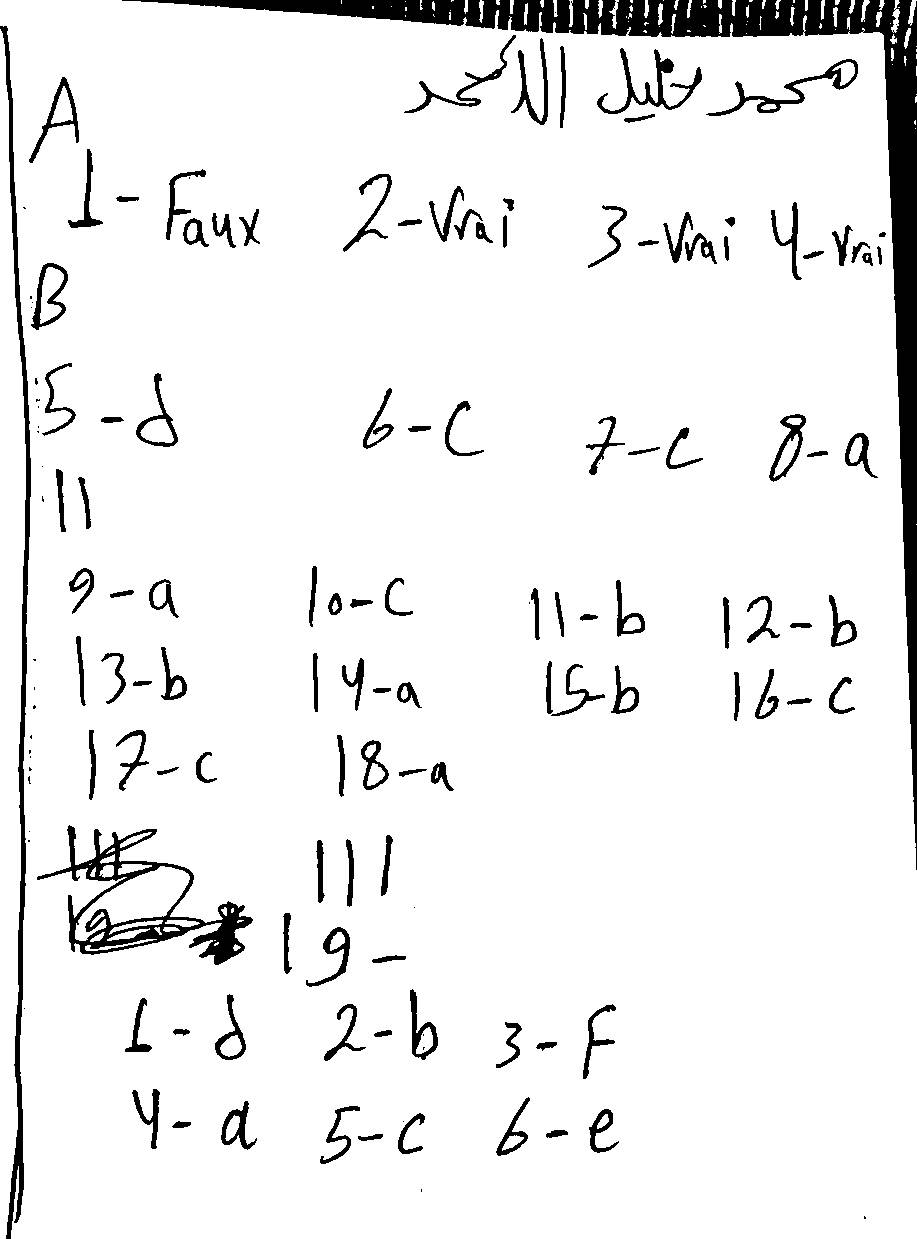 محمد خليل الأحمد
A
1- Faux 2-Vrai 3-Vrai 4-Vrai
B
5-d 6-C 7-c 8-a
11
9-a 10-C 11-b 12-b
13-b 14-a 15-b 16-c
17-c 18-a
111
19-
1-d 2-b 3-F
4-a 5-c 6-e